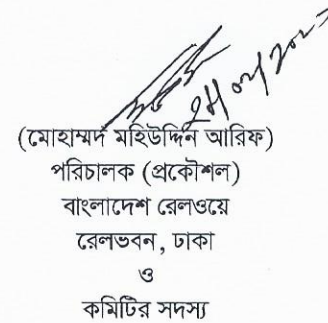 (মোহাম্মদ মহিউদ্দিন আরিফ)
পরিচালক (প্রকৌশল)
বাংলাদেশ রেলওয়ে
রেলভবন, ঢাকা
ও
কমিটির সদস্য